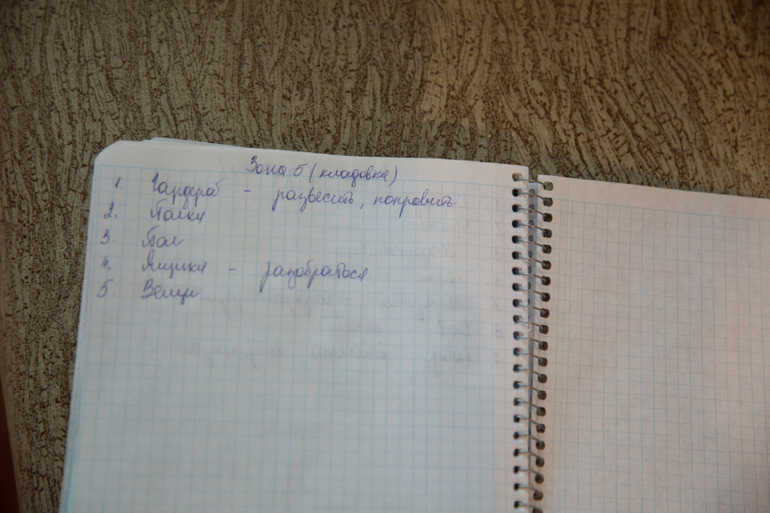 Зона 5 (кладовка)
1. Гардероб - развесить, поправить
2. Полки
3. Пол
4. Ящики - разобраться
5 Вещи